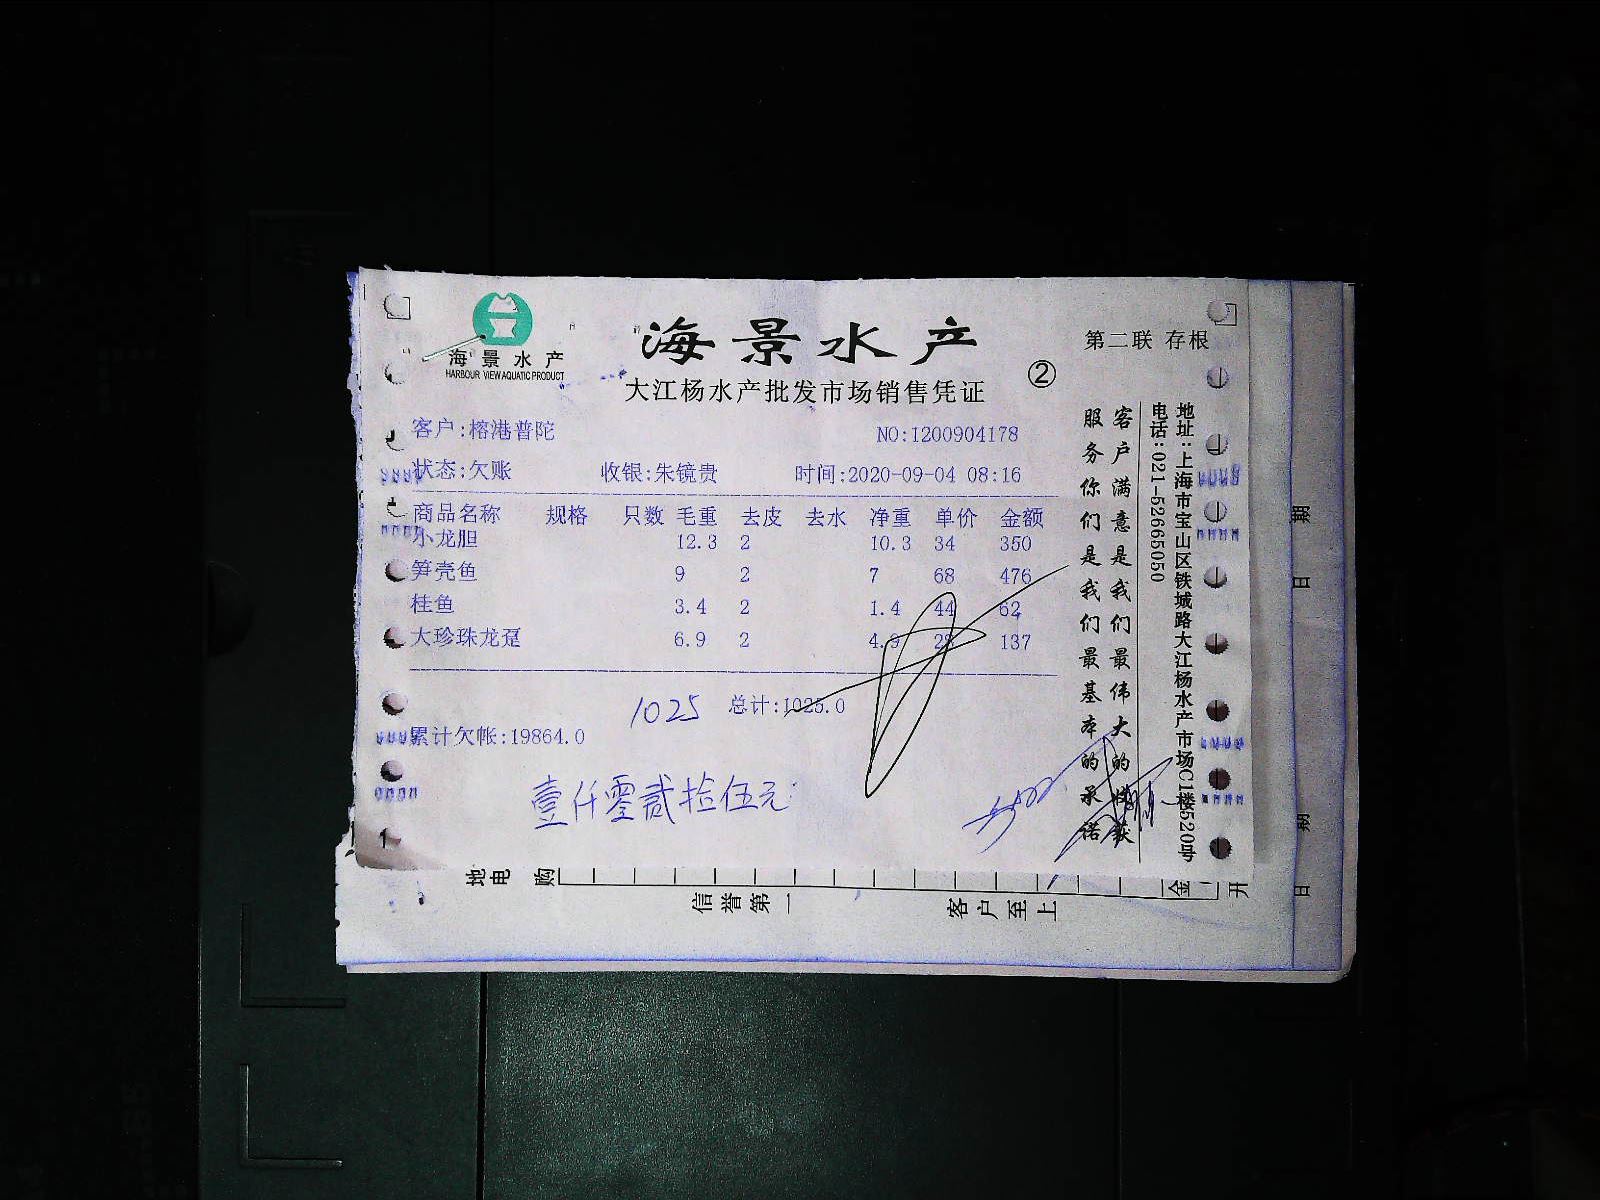 海景水产
HARBOUR VIEW AQUATIC PRODUCT
海景水产
大江杨水产批发市场销售凭证
②
第二联 存根
客户:榕港普陀 NO:1200904178
状态:欠账 收银:朱镜贵 时间:2020-09-04 08:16
商品名称 规格 只数 毛重 去皮 去水 净重 单价 金额
小龙胆 12.3 2 10.3 34 350
笋壳鱼 9 2 7 68 476
桂鱼 3.4 2 1.4 44 62
大珍珠龙趸 6.9 2 4.9 28 137
1025 总计:1025.0
累计欠帐:19864.0
壹仟零贰拾伍元
客户满意是我们最伟大的收获
服务你们是我们最基本的承诺
地址:上海市宝山区铁城路大江杨水产市场C1楼520号
电话:021-52665050
1
地电 购
金 开
信誉第一 客户至上
期
日
期
日